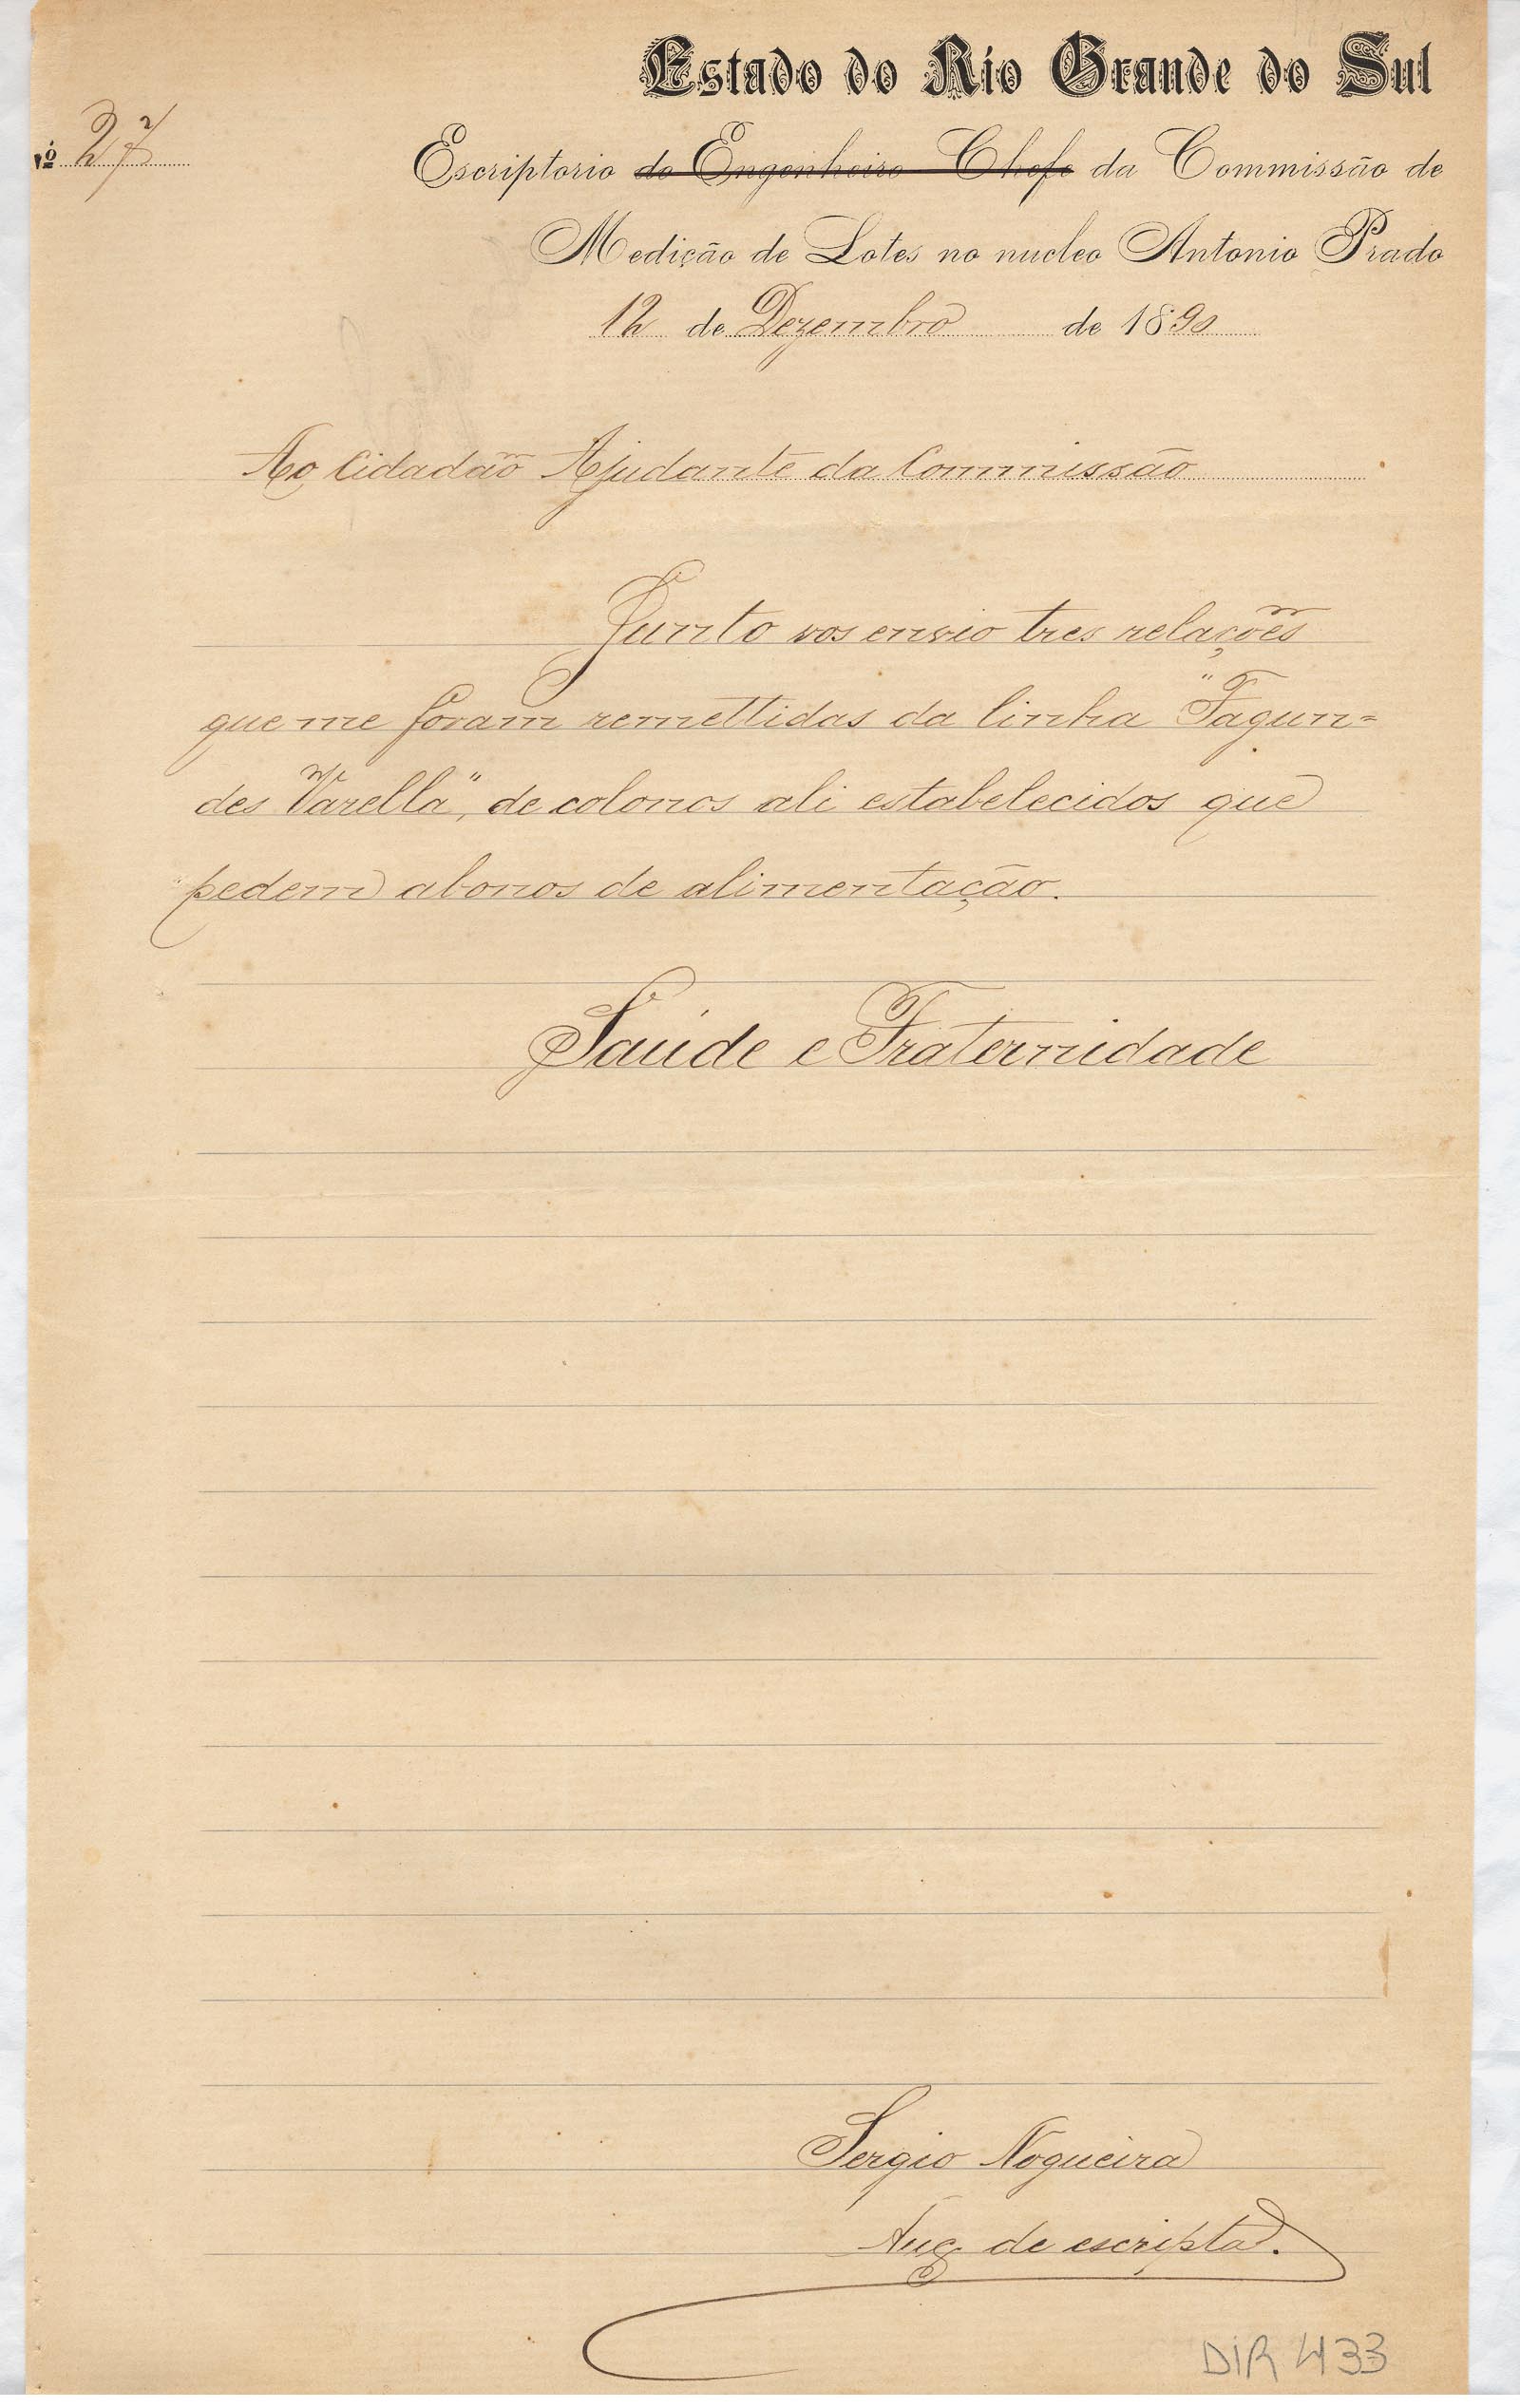 Estado do Rio Grande do Sul
Nº 27
Escriptorio do Engenheiro Chefe da Commissão de
Medição de Lotes no nucleo Antonio Prado
12 de Dezembro de 1890
Ao Cidadão Ajudante da Commissão
Junto vos envio tres relações
que me foram remettidas da linha "Fagun=
des Varella", de colonos ali estabelecidos que
pedem abonos de alimentação.
Saúde e Fraternidade
Sergio Nogueira
Aug. de escripta.
DIR 433